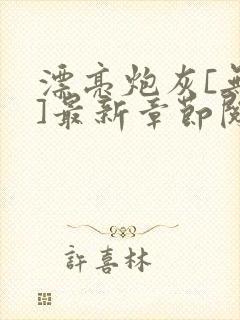 漂亮炮灰[無
]最新章節閱
許喜林